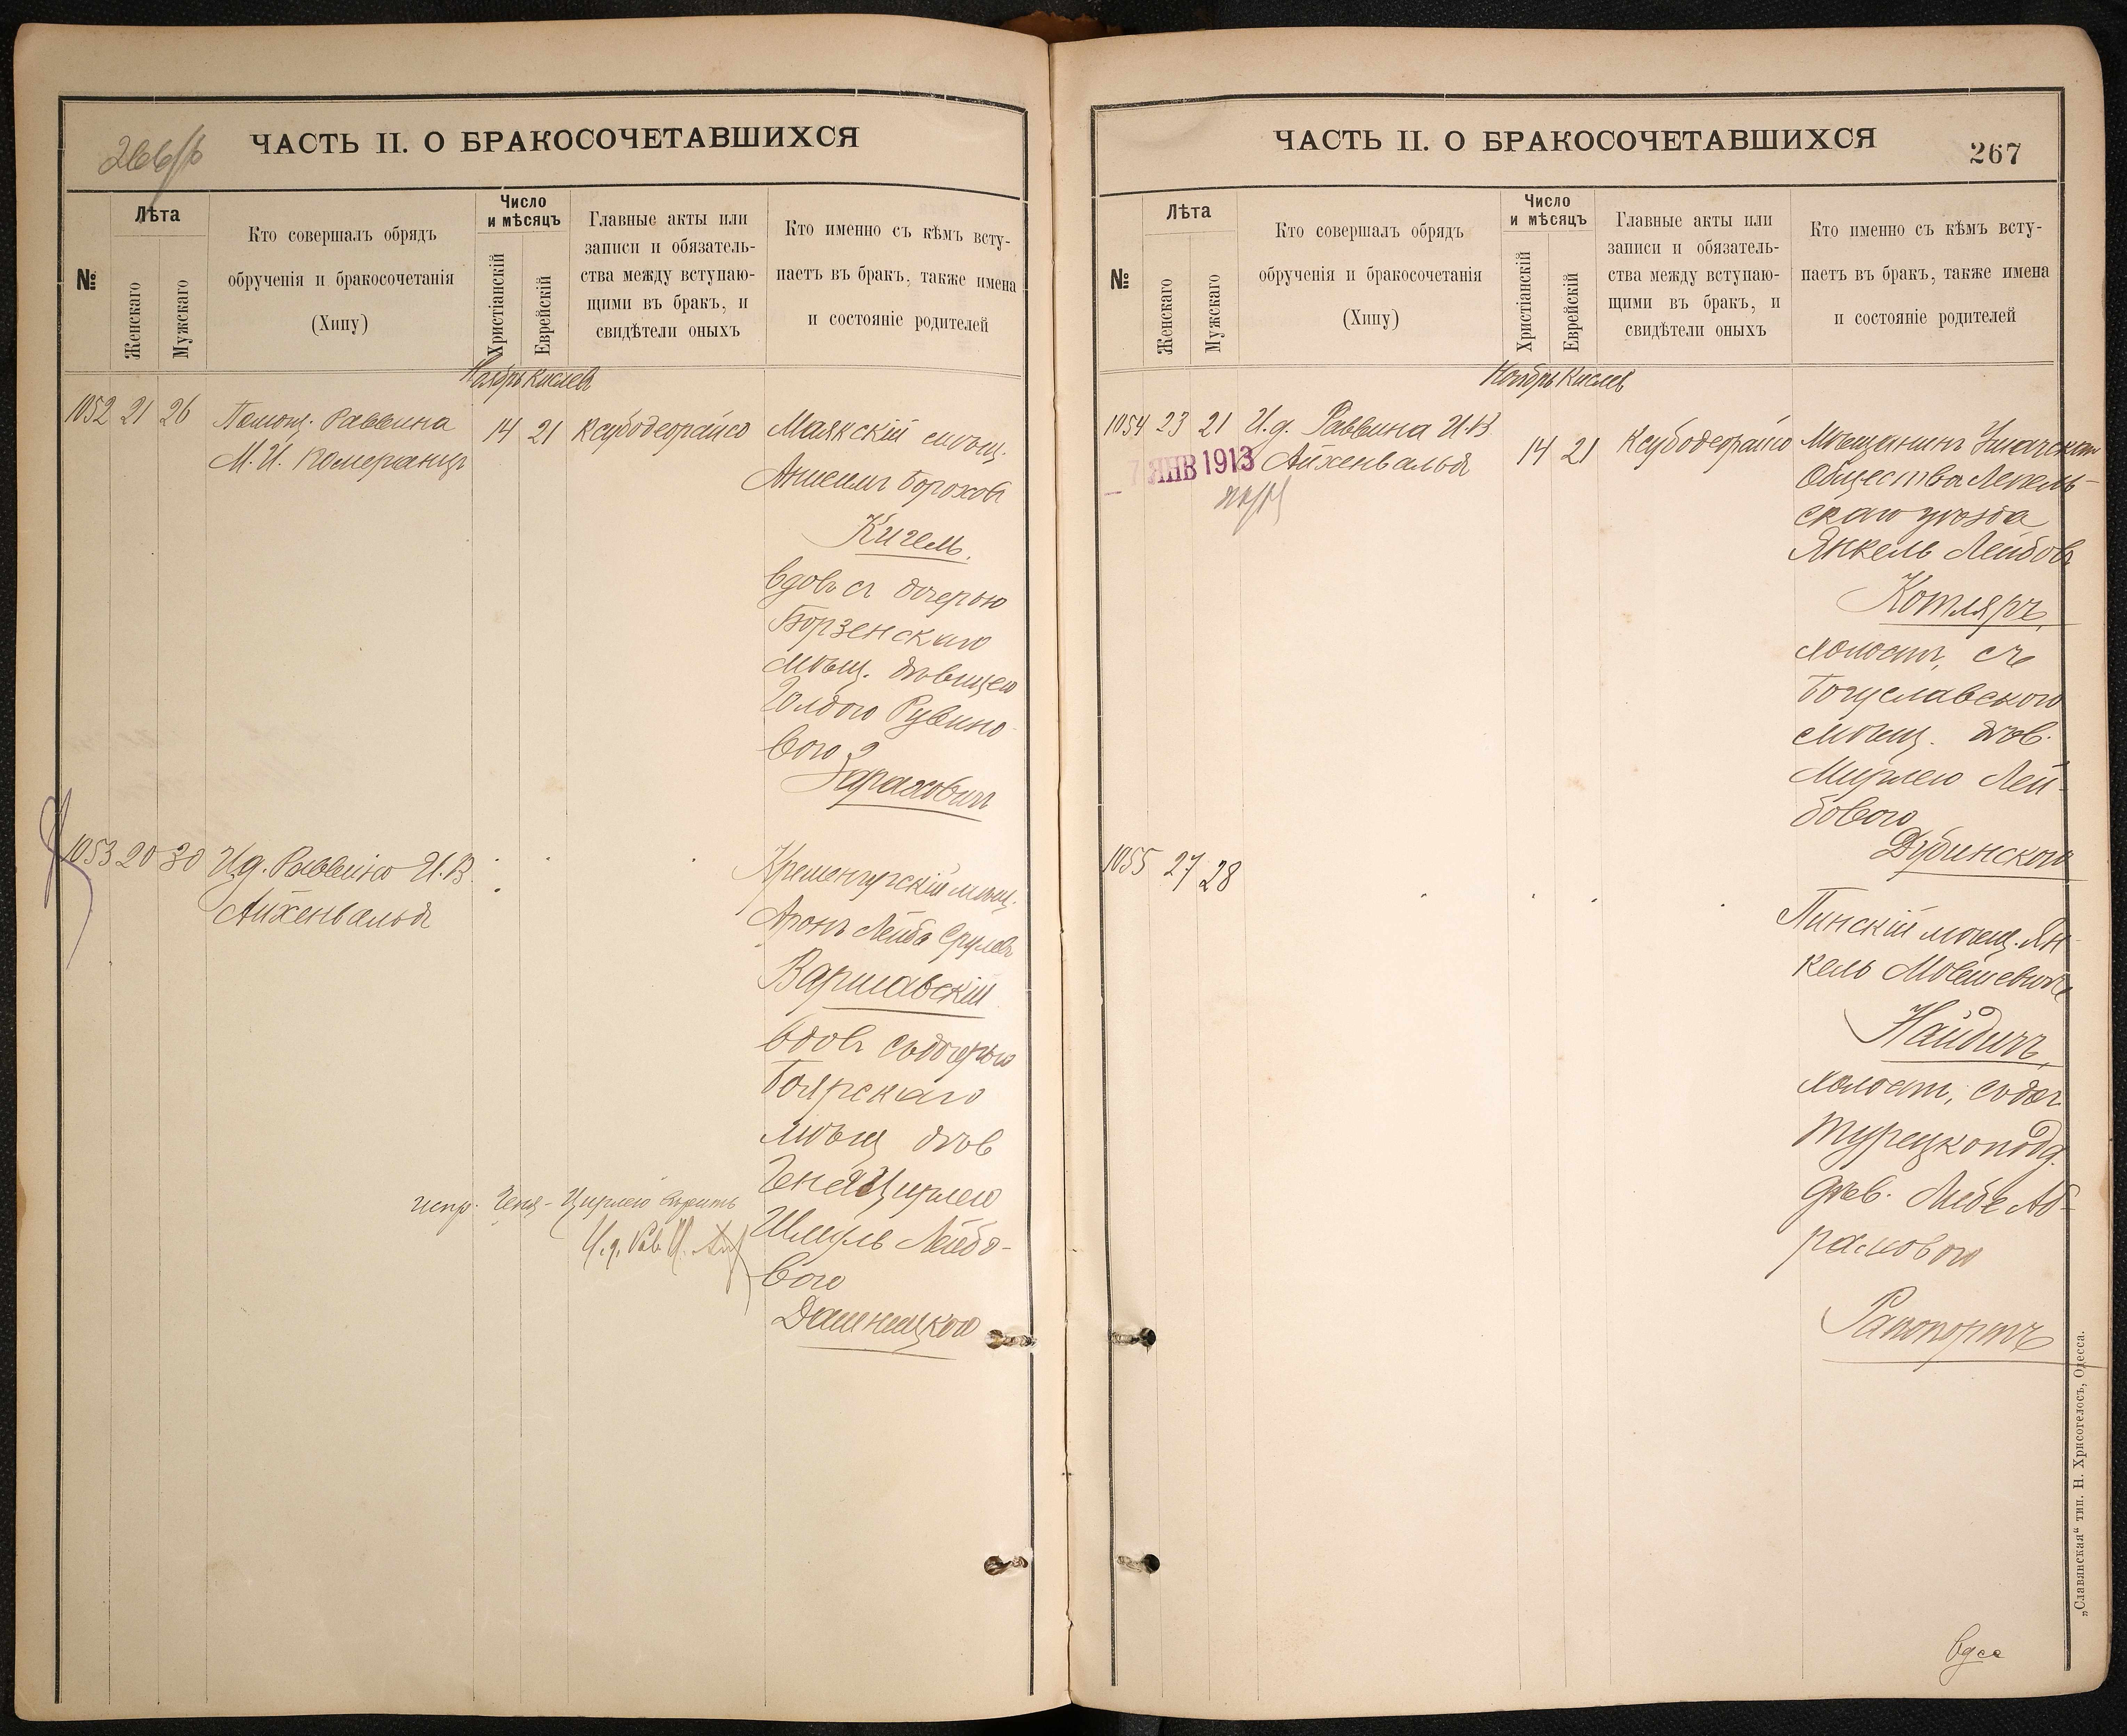 266/б
ЧАСТЬ II. О БРАКОСОЧЕТАВШИХСЯ
№
Лѣта
Женскаго
Мужскаго
Кто совершалъ обрядъ
обрученія и бракосочетанія
(Хипу)
Число
и мѣсяцъ
Христіанскій
Еврейскій
Главные акты или
записи и обязатель-
ства между вступаю-
щими въ бракъ, и
свидѣтели оныхъ
Кто именно съ кѣмъ всту-
паетъ въ бракъ, также имена
и состояніе родителей
Ноябрь Кислев
1052 21 26
Помощ. Раввина
М. И. Померанцъ
14 21
Ксубодеорайсо
Маякскій мѣщ.
Аншелъ Борохов
Кигель.
вдов съ дочерью
Борзенскаго
мѣщ. дѣвицею
Голдою Рувино
вого
Зарахович
1053 20 30
И.д. Раввина И.В.
Айхенвальд
Кременчугскій мѣщ.
Аронъ Лейба Срулев
Варшавскій
вдовъ съ дочерью
Боярскаго
мѣщ дѣв
Геня Цирлею
Шмуль Лейбо-
вого
Дашницкого
испр. Геня-Цирлею вѣрить
И.д. Рав. И. Айх
ЧАСТЬ II. О БРАКОСОЧЕТАВШИХСЯ
267
№
Лѣта
Женскаго
Мужскаго
Кто совершалъ обрядъ
обрученія и бракосочетанія
(Хипу)
Число
и мѣсяцъ
Христіанскій
Еврейскій
Главные акты или
записи и обязатель-
ства между вступаю-
щими въ бракъ, и
свидѣтели оныхъ
Кто именно съ кѣмъ всту-
паетъ въ бракъ, также имена
и состояніе родителей
Ноябрь Кислев
1054 23 21
И.д. Раввина И.В
Айхенвальд
7 ЯНВ 1913
14 21
Ксубодеорайсо
Мѣщанинъ Ушачскаго
Общества Лепель-
скаго уѣзда
Янкель Лейбов
Котляръ,
холост, съ
Богуславского
мѣщ. дѣв.
Мирлею Лей-
бового
Дубинского
1055 27 28
Пинскій мѣщ. Ян-
кель Мовшевичъ
Найдичъ,
холост, с доч.
Турецкопод.
дѣв. Либе Аб-
рамового
Рапопортъ
„Славянская“ тип. Н. Хрисогелосъ, Одесса.